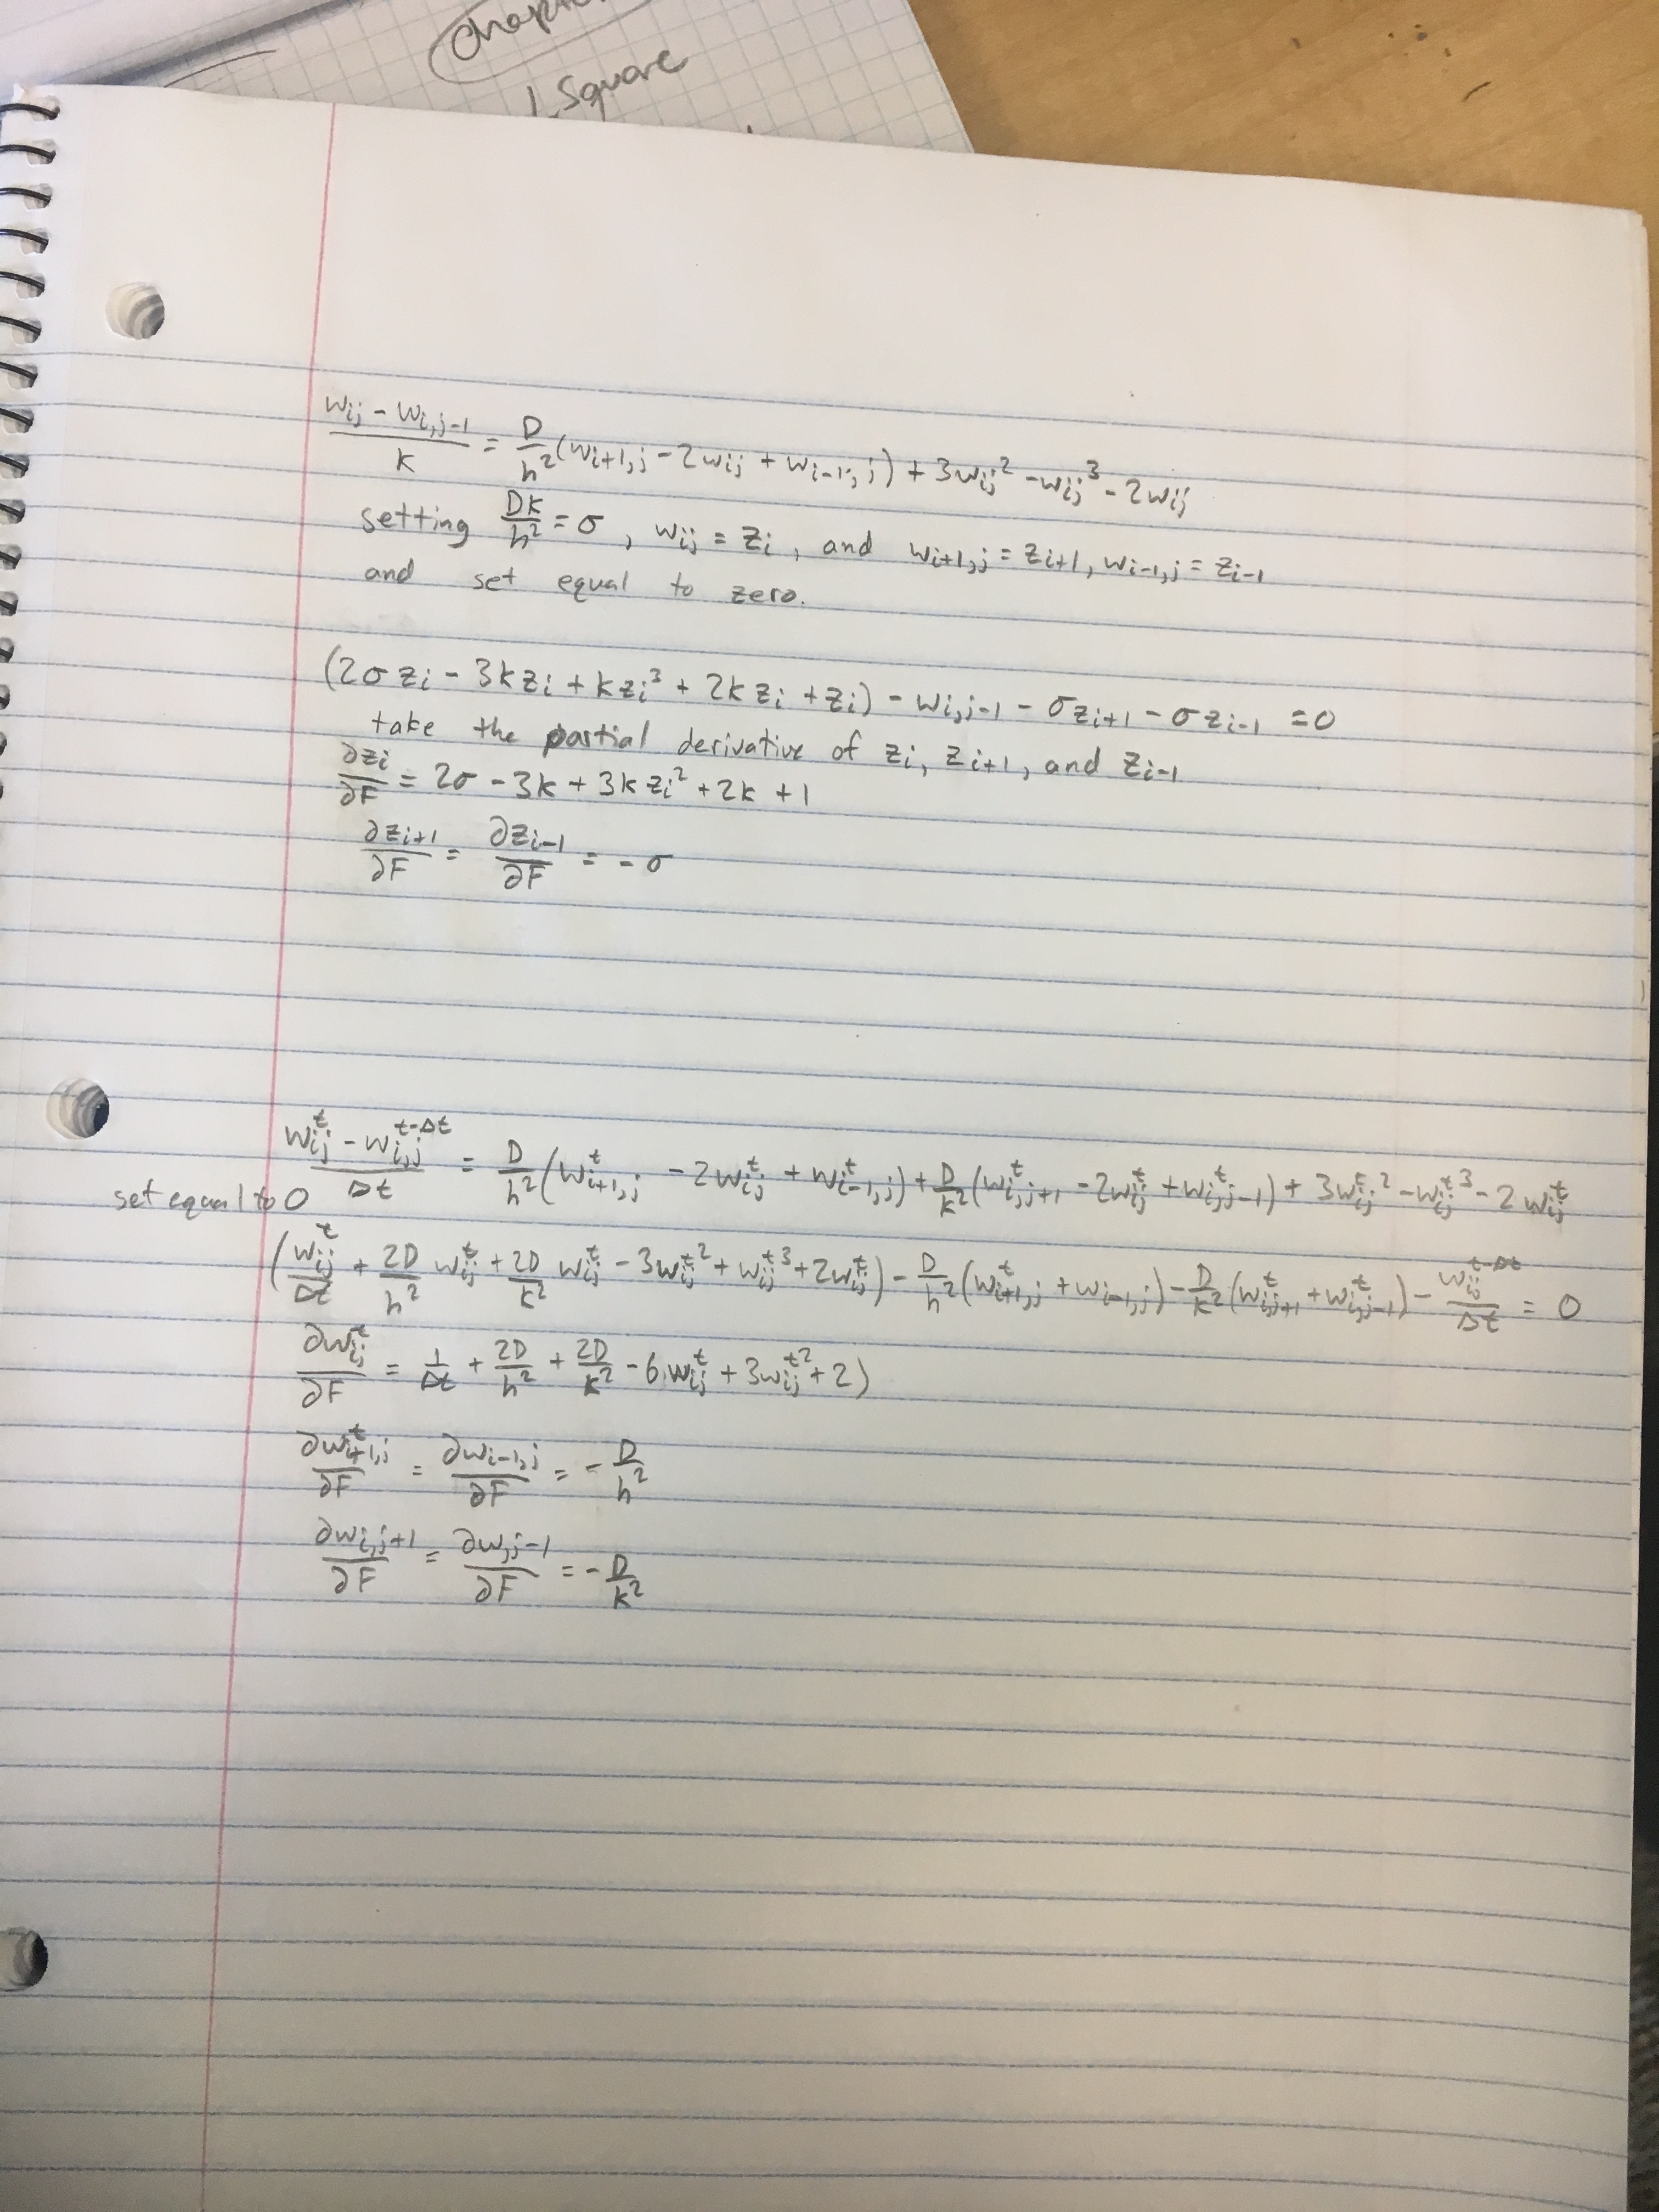 Chapte
Square
(w_{ij} - w_{i,j-1})/k = D/h² (w_{i+1,j} - 2w_{ij} + w_{i-1,j}) + 3w_{ij}² - w_{ij}³ - 2w_{ij}
setting Dk/h² = σ, w_{ij} = z_i, and w_{i+1,j} = z_{i+1}, w_{i-1,j} = z_{i-1}
and set equal to zero.
(2σz_i - 3kz_i + kz_i³ + 2kz_i + z_i) - w_{i,j-1} - σz_{i+1} - σz_{i-1} = 0
take the partial derivative of z_i, z_{i+1}, and z_{i-1}
∂z_i/∂F = 2σ - 3k + 3kz_i² + 2k + 1
∂z_{i+1}/∂F = ∂z_{i-1}/∂F = -σ
(w_{ij}^t - w_{i,j}^{t-Δt})/Δt = D/h² (w_{i+1,j}^t - 2w_{ij}^t + w_{i-1,j}^t) + D/k² (w_{i,j+1}^t - 2w_{ij}^t + w_{i,j-1}^t) + 3w_{ij}^t² - w_{ij}^t³ - 2w_{ij}^t
set equal to 0
(w_{ij}^t/Δt + 2D/h² w_{ij}^t + 2D/k² w_{ij}^t - 3w_{ij}^t² + w_{ij}^t³ + 2w_{ij}^t) - D/h² (w_{i+1,j}^t + w_{i-1,j}) - D/k² (w_{i,j+1}^t + w_{i,j-1}^t) - w_{ij}^{t-Δt}/Δt = 0
∂w_{ij}^t/∂F = 1/Δt + 2D/h² + 2D/k² - 6w_{ij}^t + 3w_{ij}^t² + 2)
∂w_{i+1,j}^t/∂F = ∂w_{i-1,j}/∂F = -D/h²
∂w_{i,j+1}/∂F = ∂w_{,j-1}/∂F = -D/k²